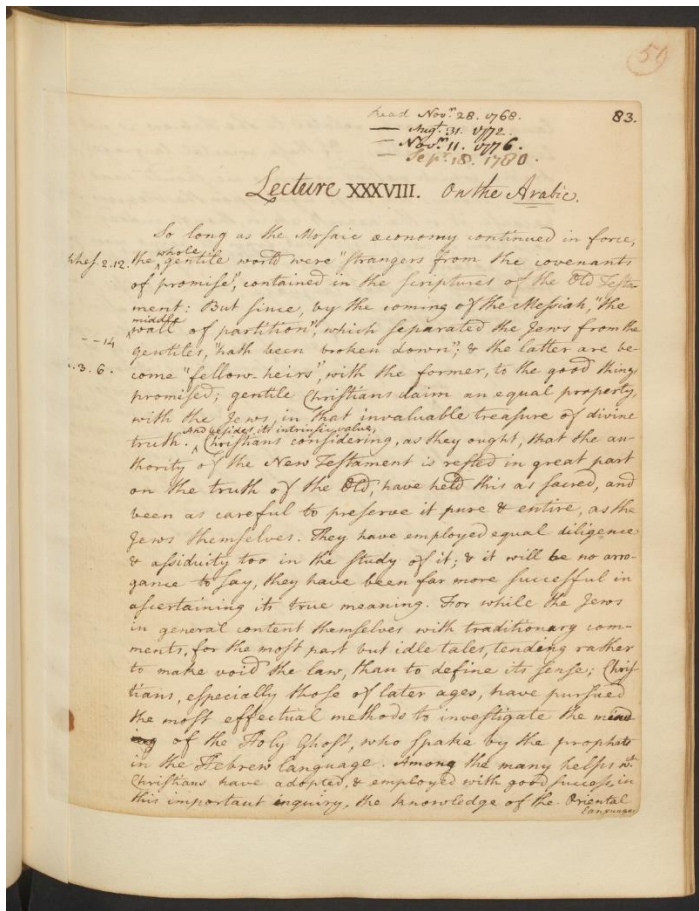 59
83.
Read Nov.r 28. 1768.
— Augt. 31. 1772.
— Nov.r 11. 1776.
— Sepr. 18. 1780.
Lecture XXXVIII. On the Arabic.
So long as the Mosaic œconomy continued in force,
Ephes 2.12. the whole gentile world were "strangers from the covenants
of promise", contained in the scriptures of the Old Testa-
ment: But since, by the coming of the Messiah, "the
middle wall of partition", which separated the Jews from the
— — 14
gentiles, "hath been broken down"; & the latter are be-
. 3. 6. come "fellow-heirs", with the former, to the good things
promised; gentile Christians claim an equal property,
with the Jews, in that invaluable treasure of divine
truth. And besides, its intrinsic value, Christians considering, as they ought, that the au-
thority of the New Testament is rested in great part
on the truth of the Old, have held this as sacred, and
been as careful to preserve it pure & entire, as the
Jews themselves. They have employed equal diligence
& assiduity too in the study of it; & it will be no arro-
gance to say, they have been far more successful in
ascertaining its true meaning. For while the Jews
in general content themselves with traditionary com-
ments, for the most part but idle tales, tending rather
to make void the law, than to define its sense; Chris-
tians, especially those of later ages, have pursued
the most effectual methods to investigate the mind
of the Holy Ghost, who spake by the prophets
in the Hebrew language. Among the many helps wt
Christians have adopted, & employed with good success, in
this important inquiry, the knowledge of the Oriental
languages